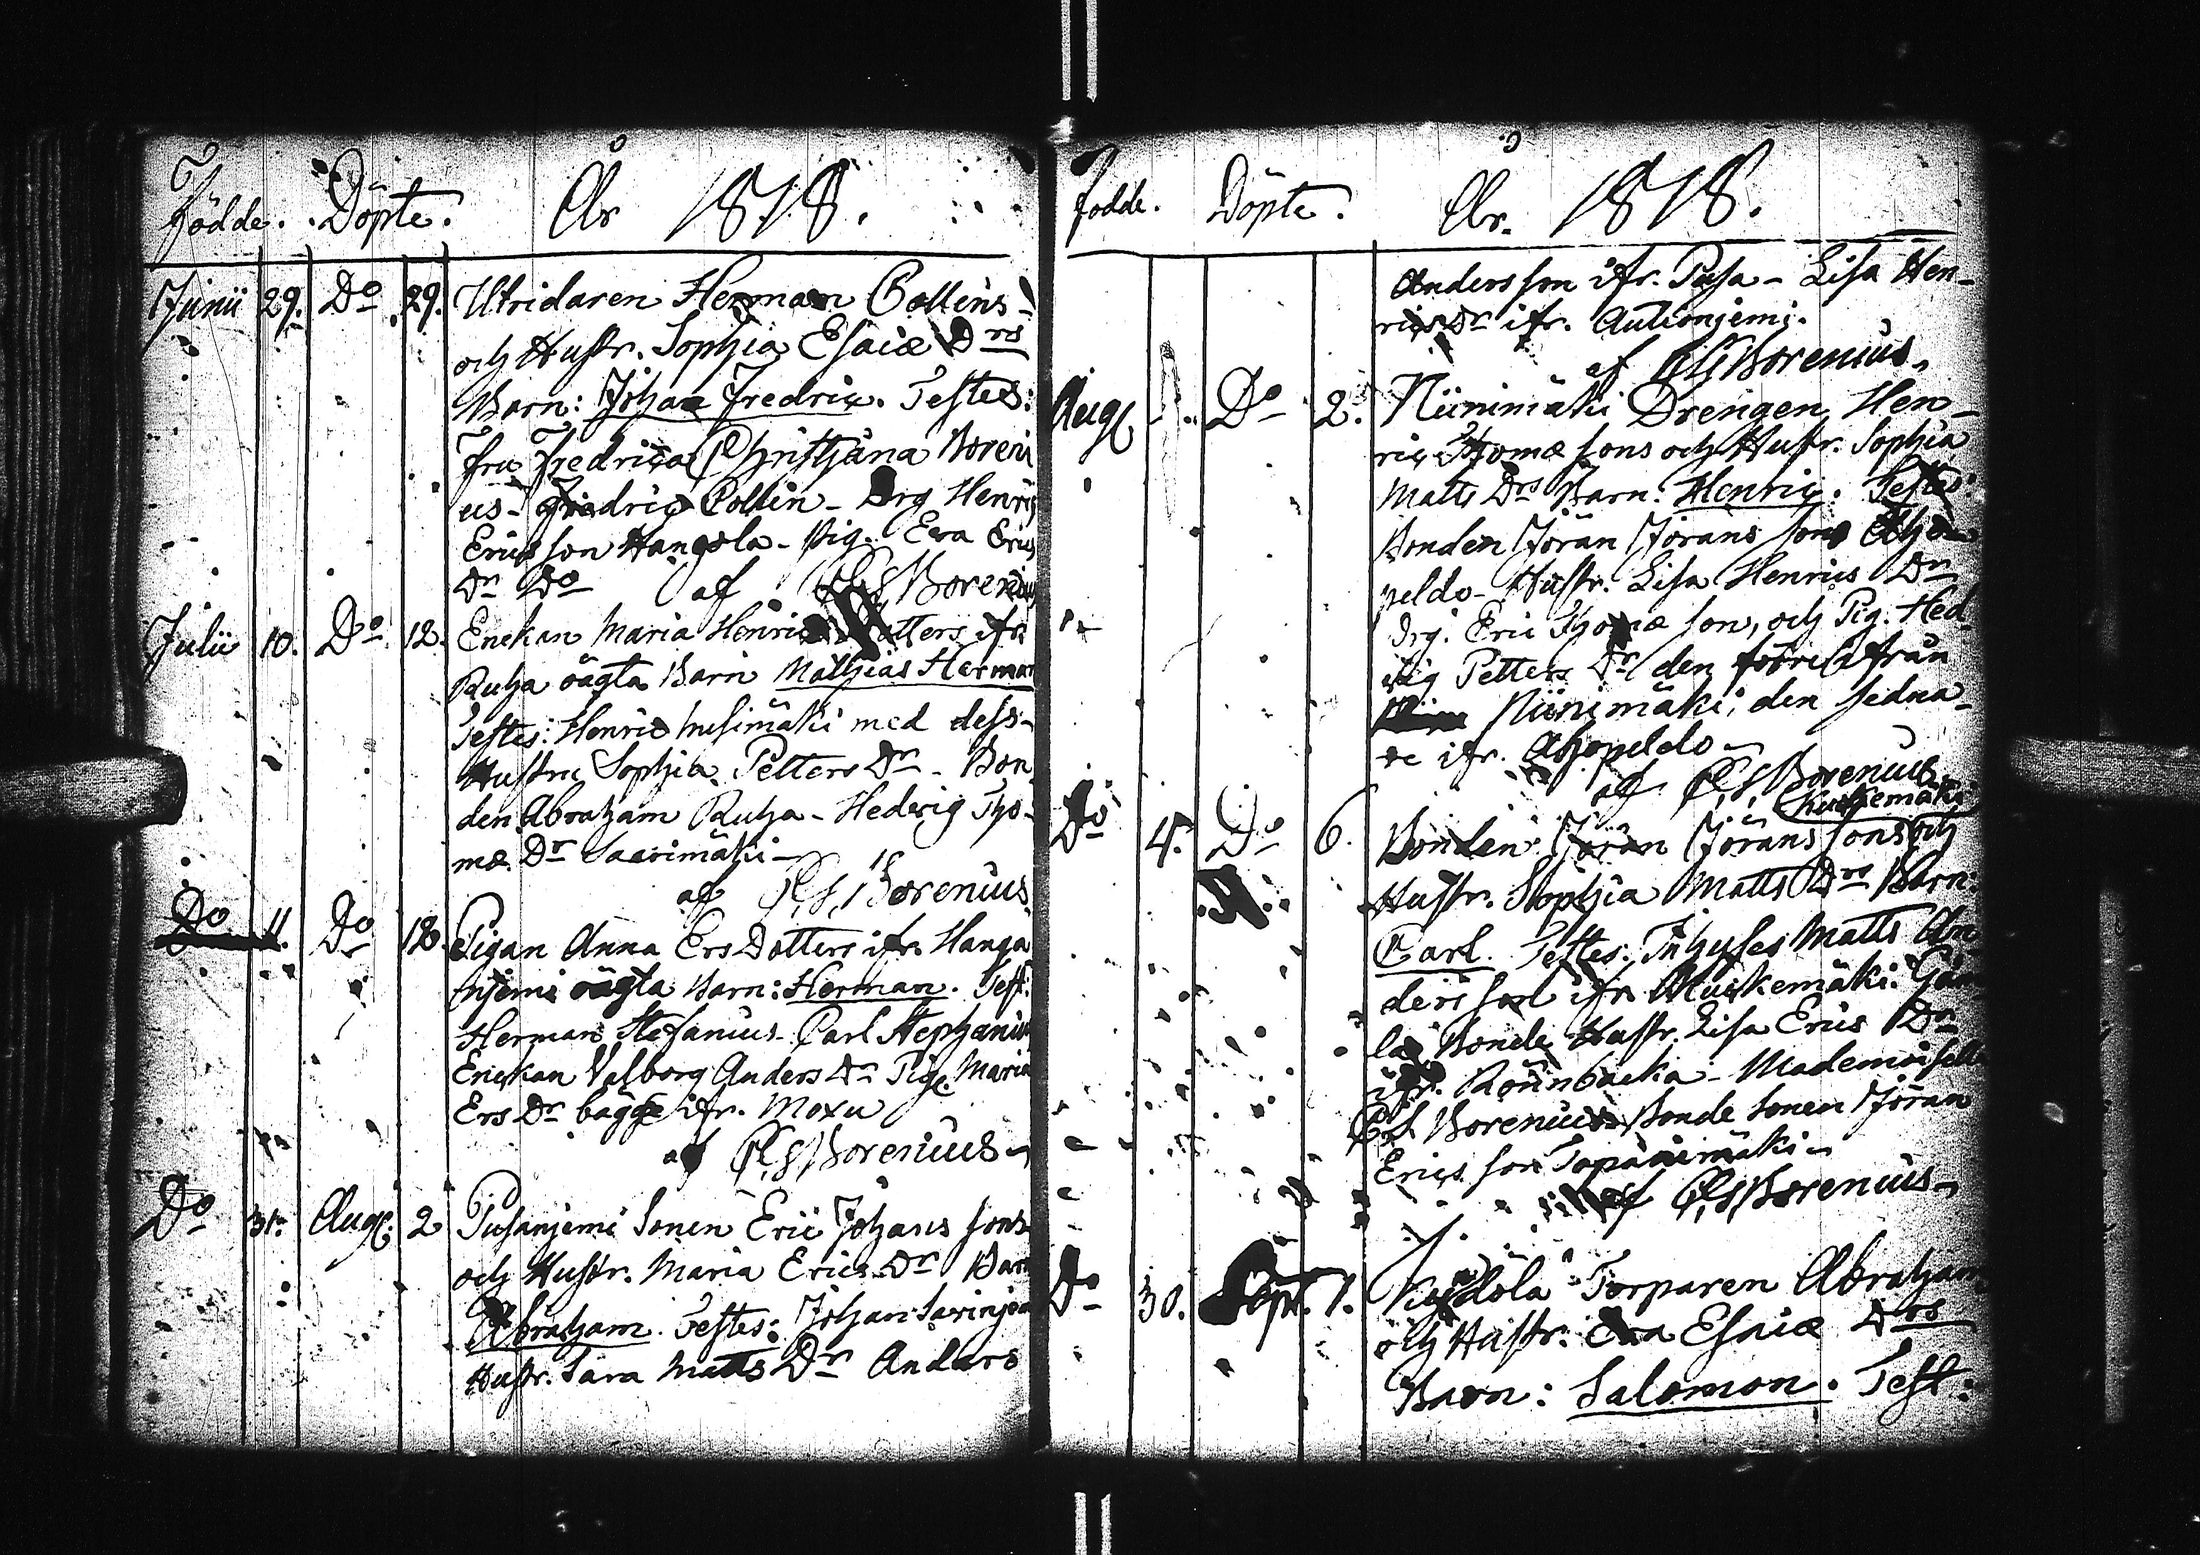 Födde. Döpte. År 1818.
Junii 29. Do 29. Utridaren Herman Collins
och Hustr. Sophia Esaiæ Drs
Barn: Johan Fredric. Testes:
Fru Fredrica Christjana Boreni
us - Fredric Collin - Drg Henric
Ericsson Hangola - Pig. Eva Erics
Dr Do af C G Borenius
Julii 10. Do 12. Enckan Maria Henrics Dotters ifr.
Ruha oägta Barn Mathias Herman
Testes: Henric med dess
Hustru Sophia Petters Dr - Bon
den Abraham Ruha - Hedvig Tho-
mæ Dr Saarimäki -
af Borenius
Do 11. Do 12. Pigan Anna Ers Dotters ifr. Hanga
njemi oägta Barn: Herman. Test:
Herman Stefanius - Carl Stephanius
Enckan Valborg Anders Dr Pig. Maria
Ers Dr bägge ifr. Moxu
af Borenius
Do 31. Aug. 2 Pusanjemi Sonen Eric Johans sons
och Hustr. Maria Erics Dr Barn
Abraham. Testes: Johan
Hustr. Sara Matts Dr Anders
födde. Döpte. År. 1818.
Andersson ifr. Pusa - Lisa Hen-
rics Dr ifr. Autionjemi.
af Borenius
Aug. 1. Do 2. Niinimäki Drengen Hen-
ric Thomæ sons och Hustr. Sophia
Matts Drs Barn: Henric. Testes:
Bonden Jöran Jörans son Aho
peldo - Hustr. Lisa Henrics Dr
Drg. Eric Thomæ son, och Pig. Hed
vig Petters Dr den förre ifrån
Niinimäki, den sedna-
re ifr. Ahopeldo -
af Borenius
Kuckemäki
Do 4. Do 6. Bonden Jöran Jörans sons och
Hustr. Sophia Matts Drs Barn
Carl. Testes: Inhyses Matts An
ders son ifr. Kuckemäki: Gam
la Bonde Hustr. Lisa Erics Dr
ifr. Rönnbacka - Mademoiselle
Borenius Bonde Sonen Jöran
Erics son
af Borenius
Do 30. Sept. 1. Torparen Abraham
och Hustr: Eva Esaiæ Drs
Barn: Salomon. Test: